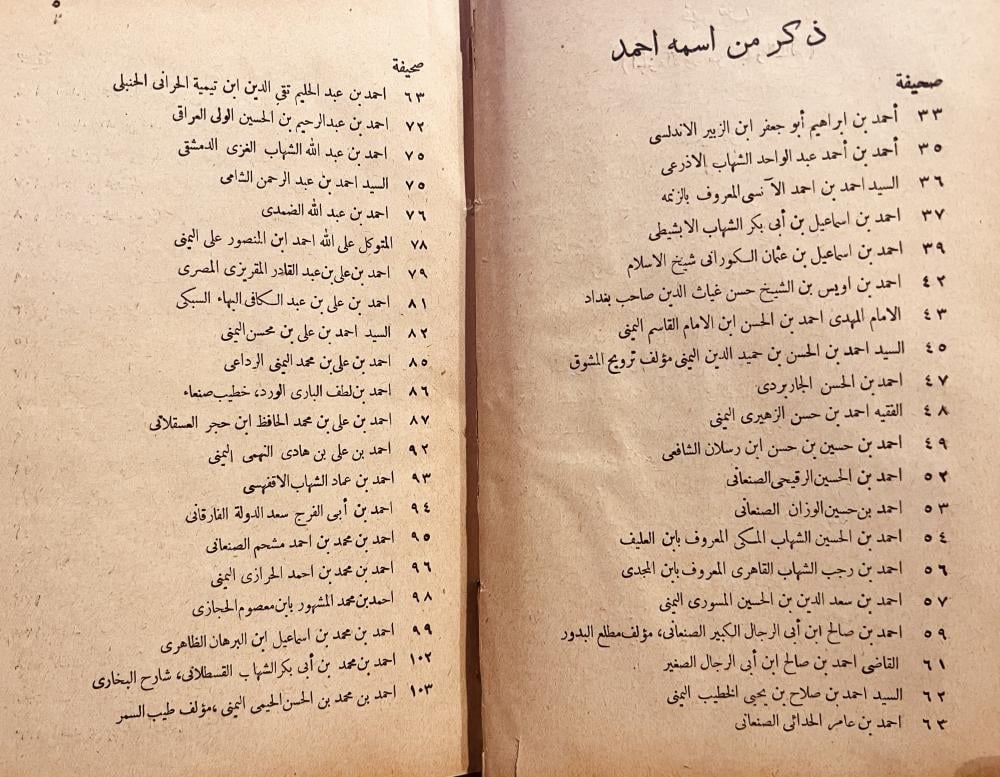 ذكر من اسمه احمد
صحيفة
٣٣ أحمد بن ابراهيم أبو جعفر ابن الزبير الاندلسى
٣٥ أحمد بن أحمد عبد الواحد الشهاب الاذرعى
٣٦ السيد احمد بن احمد الآنسى المعروف بالزنمه
٣٧ احمد بن اسماعيل بن أبى بكر الشهاب الابشيطى
٣٩ احمد بن اسماعيل بن عثمان الكورانى شيخ الاسلام
٤٢ احمد بن اويس بن الشيخ حسن غياث الدين صاحب بغداد
٤٣ الامام المهدى احمد بن الحسن ابن الامام القاسم اليمنى
٤٥ السيد احمد بن الحسن بن حميد الدين اليمنى مؤلف ترويح المشوق
٤٧ احمد بن الحسن الجاربردى
٤٨ الفقيه احمد بن حسن الزهيرى اليمنى
٤٩ احمد بن حسين بن حسن ابن رسلان الشافعى
٥٢ احمد بن الحسين الرقيحى الصنعانى
٥٣ احمد بن حسين الوزان الصنعانى
٥٤ احمد بن الحسين الشهاب المكى المعروف بابن العليف
٥٦ احمد بن رجب الشهاب القاهرى المعروف بابن المجدى
٥٧ احمد بن سعد الدين بن الحسين المسورى اليمنى
٥٩ احمد بن صالح ابن أبى الرجال الكبير الصنعانى، مؤلف مطلع البدور
٦١ القاضى احمد بن صالح ابن أبى الرجال الصغير
٦٢ السيد احمد بن صلاح بن يحيى الخطيب اليمنى
٦٣ احمد بن عامر الحدائى الصنعانى
صحيفة
٦٣ احمد بن عبد الحليم تقى الدين ابن تيمية الحرانى الحنبلى
٧٢ احمد بن عبدالرحيم بن الحسين الولى العراقى
٧٥ احمد بن عبد الله الشهاب الغزى الدمشقى
٧٥ السيد احمد بن عبد الرحمن الشامى
٧٦ احمد بن عبد الله الضمدى
٧٨ المتوكل على الله احمد ابن المنصور على اليمنى
٧٩ احمد بن على بن عبد القادر المقريزى المصرى
٨١ احمد بن على بن عبد الكافى البهاء السبكى
٨٢ السيد احمد بن على بن محسن اليمنى
٨٥ احمد بن على بن محمد اليمنى الرداعى
٨٦ احمد بن لطف البارى الورد، خطيب صنعاء
٨٧ احمد بن على بن محمد الحافظ ابن حجر العسقلانى
٩٢ احمد بن على بن هادى النهمى اليمنى
٩٣ احمد بن عماد الشهاب الاقفهسى
٩٤ احمد بن أبى الفرج سعد الدولة الفارقانى
٩٥ احمد بن محمد بن احمد مشحم الصنعانى
٩٦ احمد بن محمد بن احمد الحرازى اليمنى
٩٨ احمد بن محمد المشهور بابن معصوم الحجازى
٩٩ احمد بن محمد بن اسماعيل ابن البرهان الظاهرى
١٠٢ احمد بن محمد بن أبى بكر الشهاب القسطلانى، شارح البخارى
١٠٣ احمد بن محمد بن الحسن الحيمى اليمنى، مؤلف طيب السمر